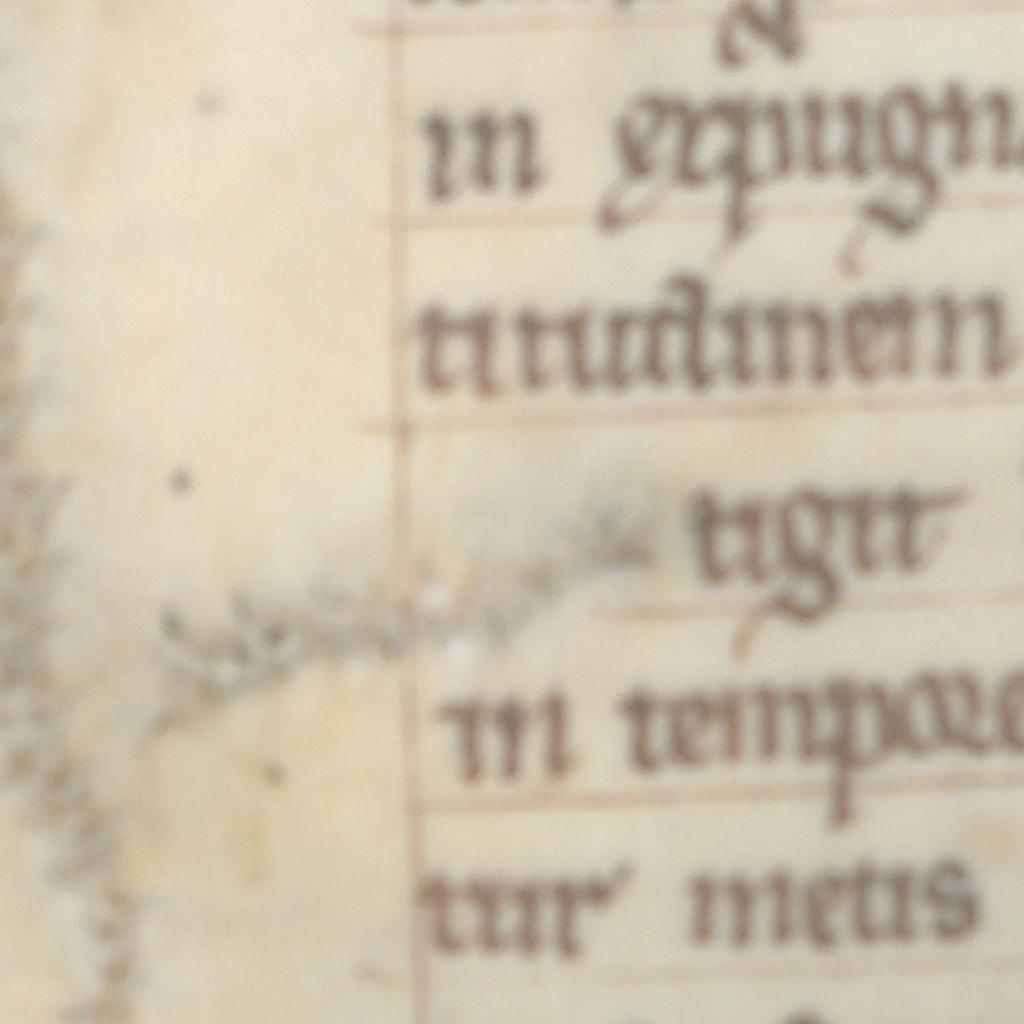 in expugn
titudinem
tigit
in tempore
tur metis